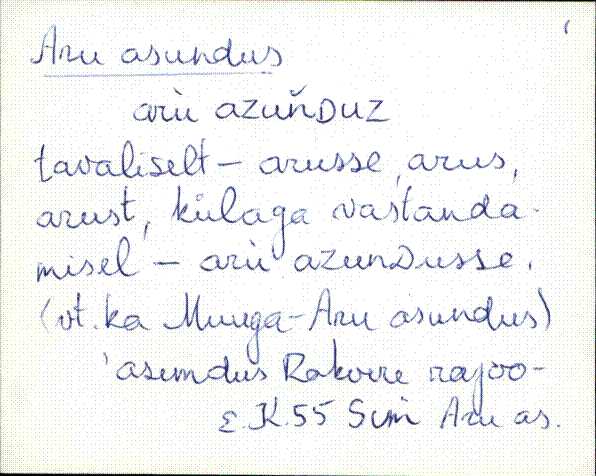 Aru asundus
arù azuňDUZ
tavaliselt – arusse, arus,
arust, külaga vastanda-
misel – arù azunDusse.
(vt. ka Muuga-Aru asundus)
'asundus Rakvere rajoo-
E.K. 55 Sim Aru as.